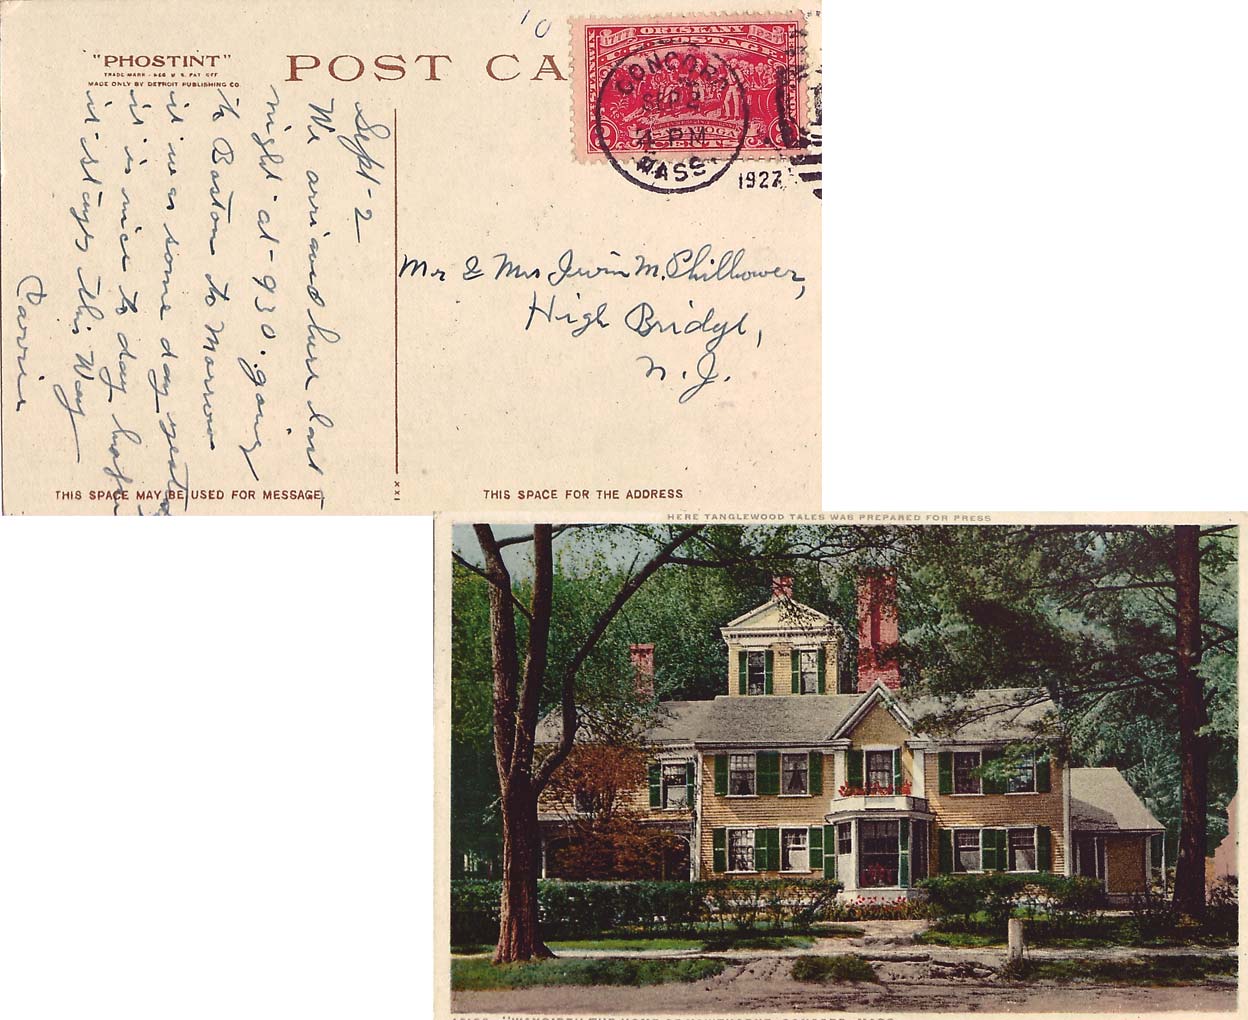 "PHOSTINT"
TRADE MARK - REG U S. PAT OFF
MADE ONLY BY DETROIT PUBLISHING CO.
POST CA
10
1777 ORISKANY 1927
U.S. POSTAGE
2 CENTS 2
CONCORD
SEP 2
4 PM
MASS.
1927
Sept - 2
We arrived here last
night at - 930. going
to Boston to Morrow
it was some day
it is nice to day
it - stays this Way
Carrie
Mr & Mrs Irvin M. Philhower,
High Bridge,
N. J.
THIS SPACE MAY BE USED FOR MESSAGE.
XXI
THIS SPACE FOR THE ADDRESS
HERE TANGLEWOOD TALES WAS PREPARED FOR PRESS
"WAYSIDE" THE HOME OF HAWTHORNE, CONCORD, MASS.